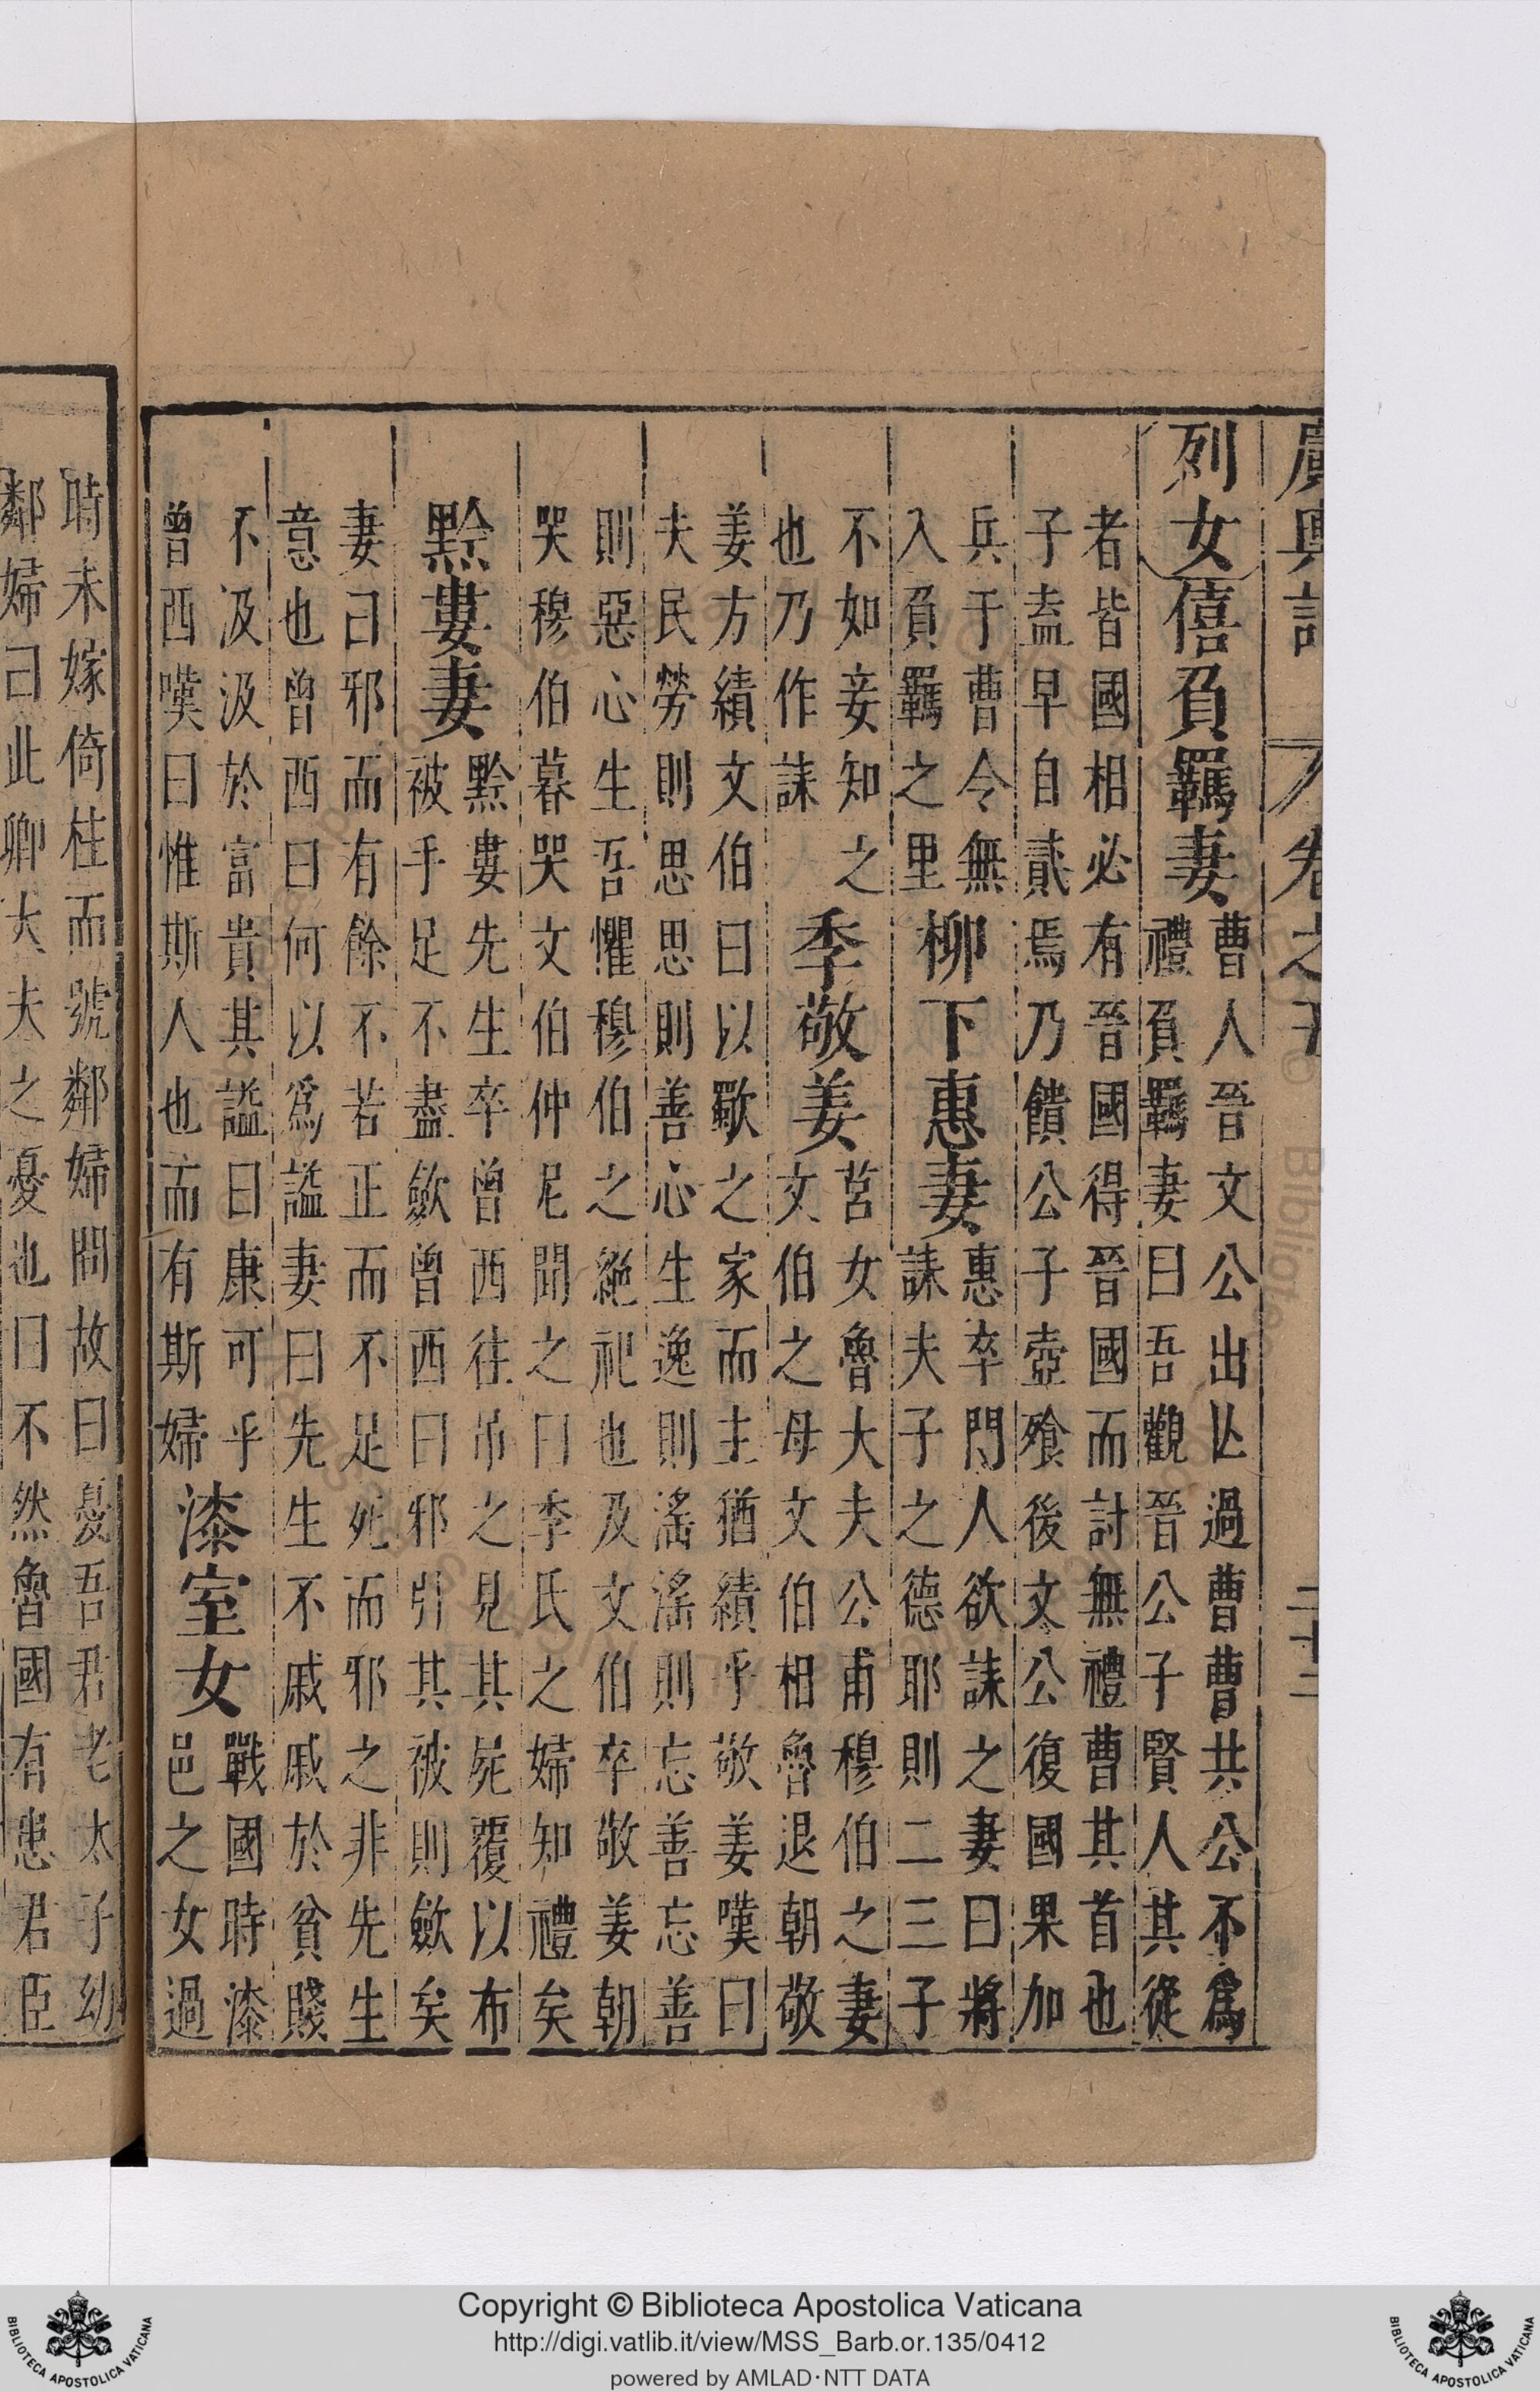 廣輿記 卷之
二十二
列女
僖負羈妻
曹人晉文公出亾過曹曹共公不爲
禮負羈妻曰吾觀晉公子賢人其從
者皆國相必有晉國得晉國而討無禮曹其首也
子盍早自貳焉乃饋公子壺飱後文公復國果加
兵于曹令無
入負羈之里
柳下惠妻
惠卒門人欲誄之妻曰將
誄夫子之德耶則二三子
不如妾知之
也乃作誄
季敬姜
莒女魯大夫公甫穆伯之妻
文伯之母文伯相魯退朝敬
姜方績文伯曰以歜之家而主猶績乎敬姜嘆曰
夫民勞則思思則善心生逸則滛滛則忘善忘善
則惡心生吾懼穆伯之絕祀也及文伯卒敬姜朝
哭穆伯暮哭文伯仲尼聞之曰季氏之婦知禮矣
黔婁妻
黔婁先生卒曾西往吊之見其屍覆以布
被手足不盡歛曾西曰邪引其被則歛矣
妻曰邪而有餘不若正而不足死而邪之非先生
意也曾西曰何以爲謚妻曰先生不戚戚於貧賤
不汲汲於富貴其謚曰康可乎
曾西嘆曰惟斯人也而有斯婦
漆室女
戰國時漆
邑之女過
時未嫁倚柱而號鄰婦問故曰憂吾君老太子幼
鄰婦曰此卿大夫之憂也曰不然魯國有患君臣
Copyright © Biblioteca Apostolica Vaticana
http://digi.vatlib.it/view/MSS_Barb.or.135/0412
powered by AMLAD·NTT DATA
BIBLIOTECA APOSTOLICA VATICANA
BIBLIOTECA APOSTOLICA VATICANA